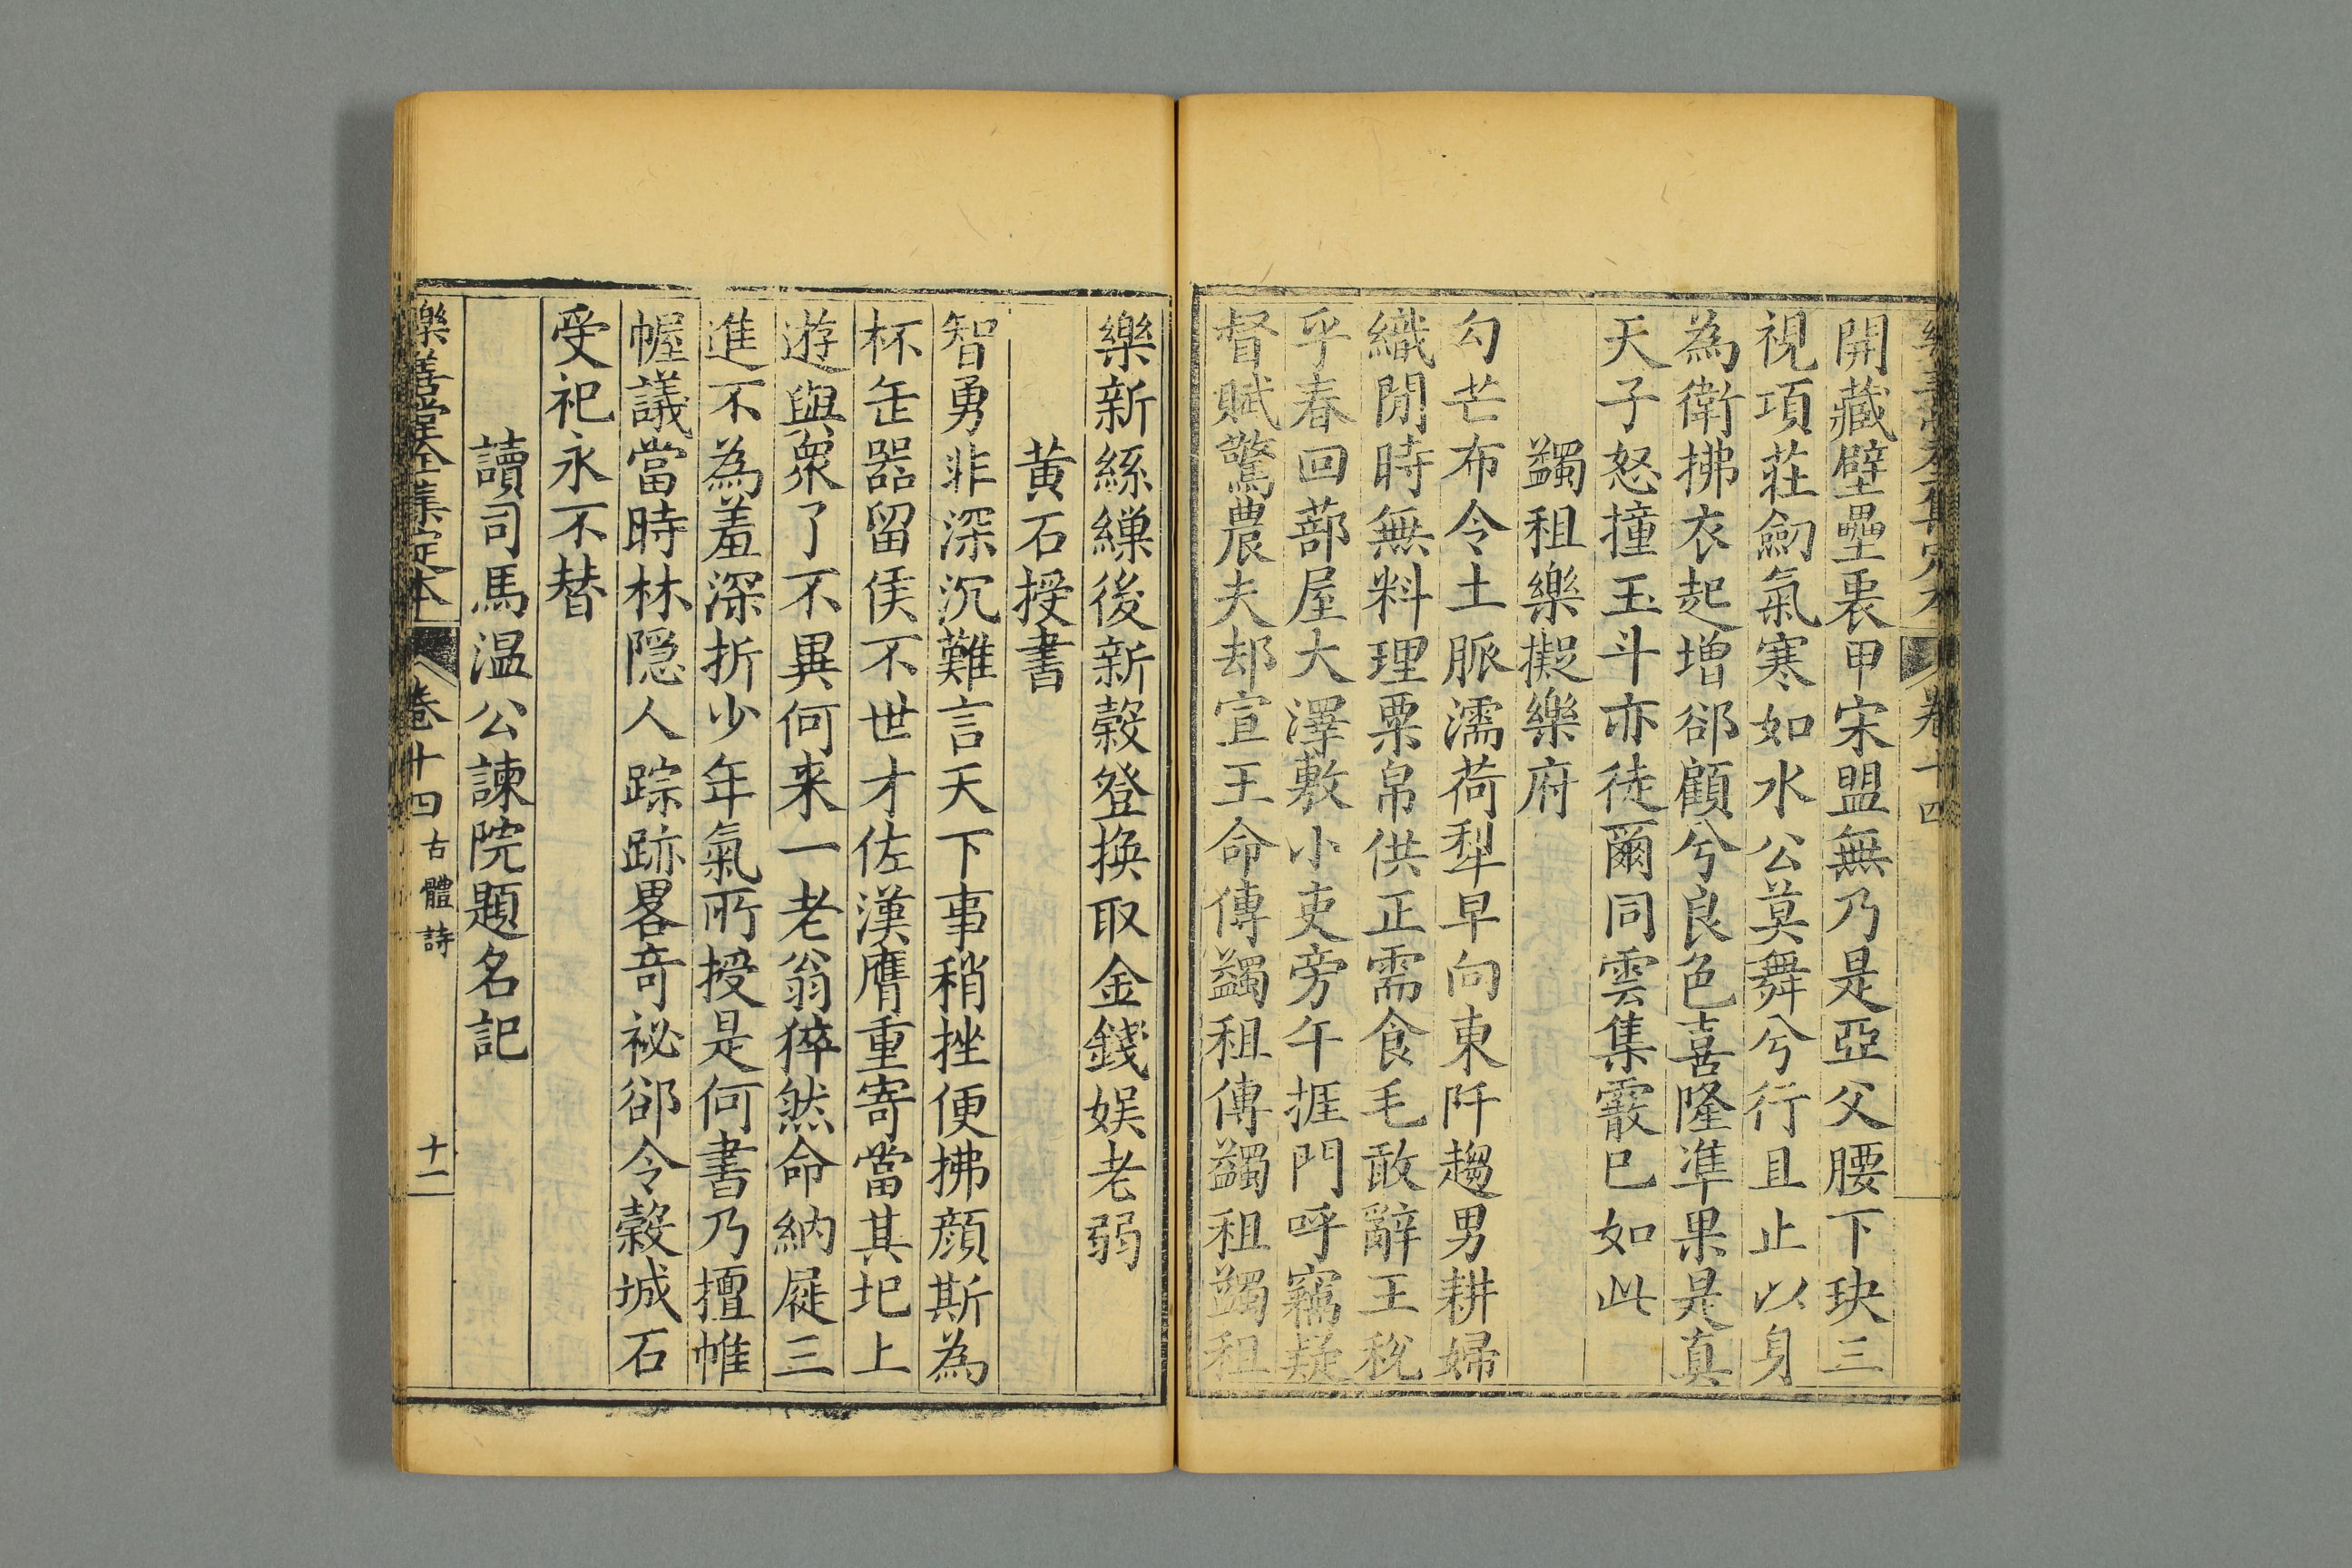 開藏壁壘衷甲宋盟無乃是亞父腰下玦三
視項莊劒氣寒如水公莫舞兮行且止以身
為衛拂衣起增郤顧兮良色喜隆準果是真
天子怒撞玉斗亦徒爾同雲集霰已如此
蠲租樂擬樂府
勾芒布令土脈濡荷犁早向東阡趨男耕婦
織閒時無料理粟帛供正需食毛敢辭王稅
乎春回蔀屋大澤敷小吏旁午捱門呼竊疑
督賦驚農夫却宣王命傳蠲租傳蠲租蠲租
卷十四
樂新絲繅後新穀登換取金錢娛老弱
黄石授書
智勇非深沉難言天下事稍挫便拂顔斯為
杯缶器留侯不世才佐漢膺重寄當其圯上
遊與衆了不異何来一老翁猝然命納屣三
進不為羞深折少年氣所授是何書乃擅帷
幄議當時林隠人踪跡畧奇祕郤令穀城石
受祀永不替
讀司馬温公諫院題名記
樂善堂全集定本 卷十四 古體詩 十二